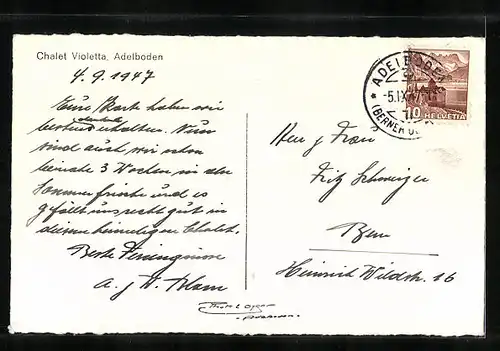 Chalet Violetta, Adelboden
4.9.1947
Eure Karte haben wir
bestens dankend erhalten. Nun
sind auch wir schon
beinahe 3 Wochen in der
Sommerfrische und es
gefällt uns recht gut in
diesem heimeligen Chalet.
Beste Feriengrüsse
A. & W. Blam
ADELBODEN
5.IX.47
(BERNER OB
10
HELVETIA
Herr & Frau
Fritz Schweizer
Bern
Heinrich Wildstr. 16